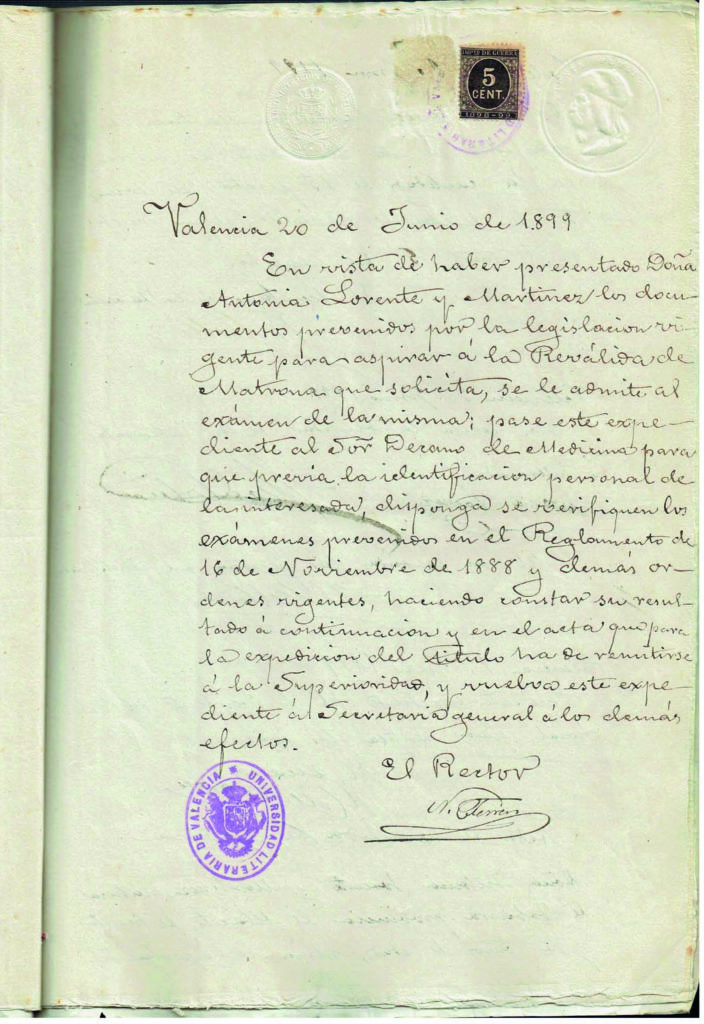 IMPTO DE GUERRA
5
CENT.
1898-99
Valencia 20 de Junio de 1.899
En vista de haber presentado Doña
Antonia Lorente y Martinez los docu-
mentos prevenidos por la legislacion vi-
gente para aspirar á la Reválida de
Matrona que solicita, se le admite al
exámen de la misma; pase este expe-
diente al Sor Decano de Medicina para
que prévia la identificacion personal de
la interesada, disponga se verifiquen los
exámenes prevenidos en el Reglamento de
16 de Noviembre de 1888 y demás or-
denes vigentes, haciendo constar su resul-
tado á continuacion y en el acta que para
la expedicion del titulo ha de remitirse
á la Superioridad, y vuelva este expe-
diente á Secretaria general á los demás
efectos.
El Rector
N. Ferrer
UNIVERSIDAD LITERARIA DE VALENCIA